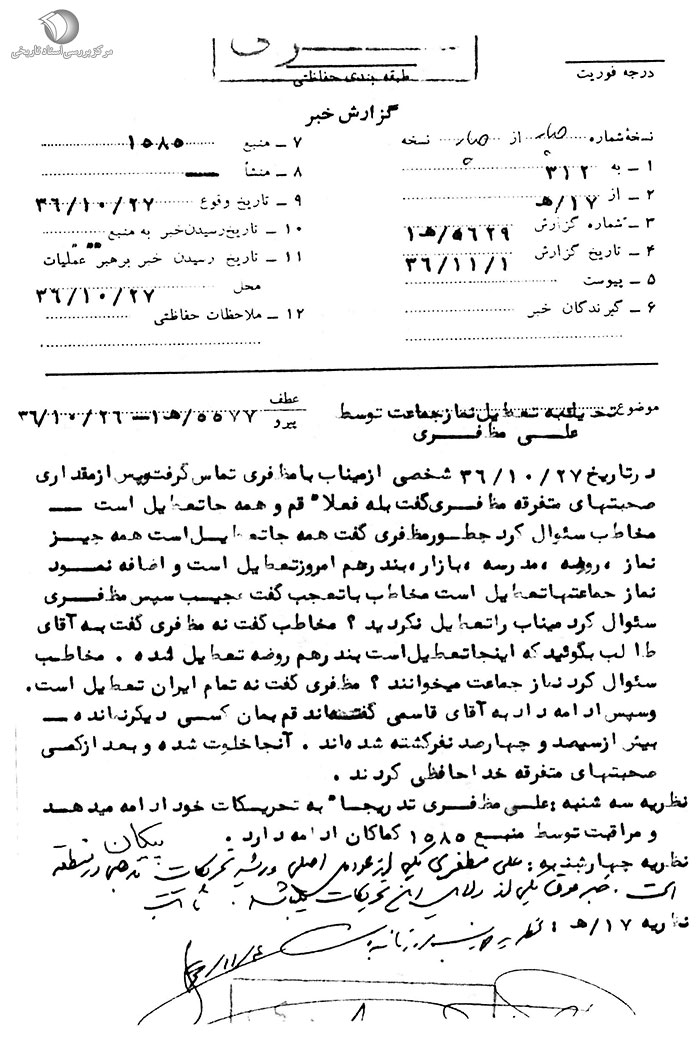 مرکز بررسی اسناد تاریخی
سری
طبقه بندی حفاظتی
درجه فوریت
گزارش خبر
نسخهٔ شماره چهار از چهار نسخه
۱ ـ به ۳۱۲
۲ ـ از ۱۷/هـ
۳ ـ شماره گزارش ۵۶۲۹/هـ۱
۴ ـ تاریخ گزارش ۳۶/۱۱/۱
۵ ـ پیوست
۶ ـ گیرندگان خبر
۷ ـ منبع ۱۵۸۵
۸ ـ منشأ
۹ ـ تاریخ وقوع ۳۶/۱۰/۲۷
۱۰ ـ تاریخ رسیدن خبر به منبع
۱۱ ـ تاریخ رسیدن خبر برهبر عملیات
محل ۳۶/۱۰/۲۷
۱۲ ـ ملاحظات حفاظتی
موضوع تحریک به تعطیل نماز جماعت توسط
علی مظفری
عطف
پیرو ۵۵۷۷/هـ۱ـ ۳۶/۱۰/۲۶
در تاریخ ۳۶/۱۰/۲۷ شخصی از میناب با مظفری تماس گرفت و پس از مقداری
صحبتهای متفرقه مظفری گفت بله فعلا" قم و همه جا تعطیل است ـــ
مخاطب سئوال کرد چطور مظفری گفت همه جا تعطیل است همه چیز
نماز ، روضه ، مدرسه ، بازار ، بندر هم امروز تعطیل است و اضافه نمود
نماز جماعتها تعطیل است مخاطب با تعجب گفت عجیب سپس مظفری
سئوال کرد میناب را تعطیل نکردید ؟ مخاطب گفت نه مظفری گفت به آقای
طالب بگوئید که اینجا تعطیل است بندر هم روضه تعطیل شده . مخاطب
سئوال کرد نماز جماعت میخوانند ؟ مظفری گفت نه تمام ایران تعطیل است .
و سپس ادامه داد به آقای قاسمی گفته‌اند قم بمان کسی دیگر نمانده ـــ
بیش از سیصد و چهارصد نفر کشته شده‌اند . آنجا خلوت شده و بعد از کمی
صحبتهای متفرقه خداحافظی کردند .
نظریه سه شنبه : علی مظفری تدریجا" به تحریکات خود ادامه میدهد
و مراقبت توسط منبع ۱۵۸۵ کماکان ادامه دارد . پیکان
نظریه چهارشنبه : علی مظفری یکی از عوامل اصلی و ریشه تحریکات مذهبی در منطقه
است . خبر فوق یکی از دلایل این تحریکات میباشد .
نظریه ۱۷/هـ :